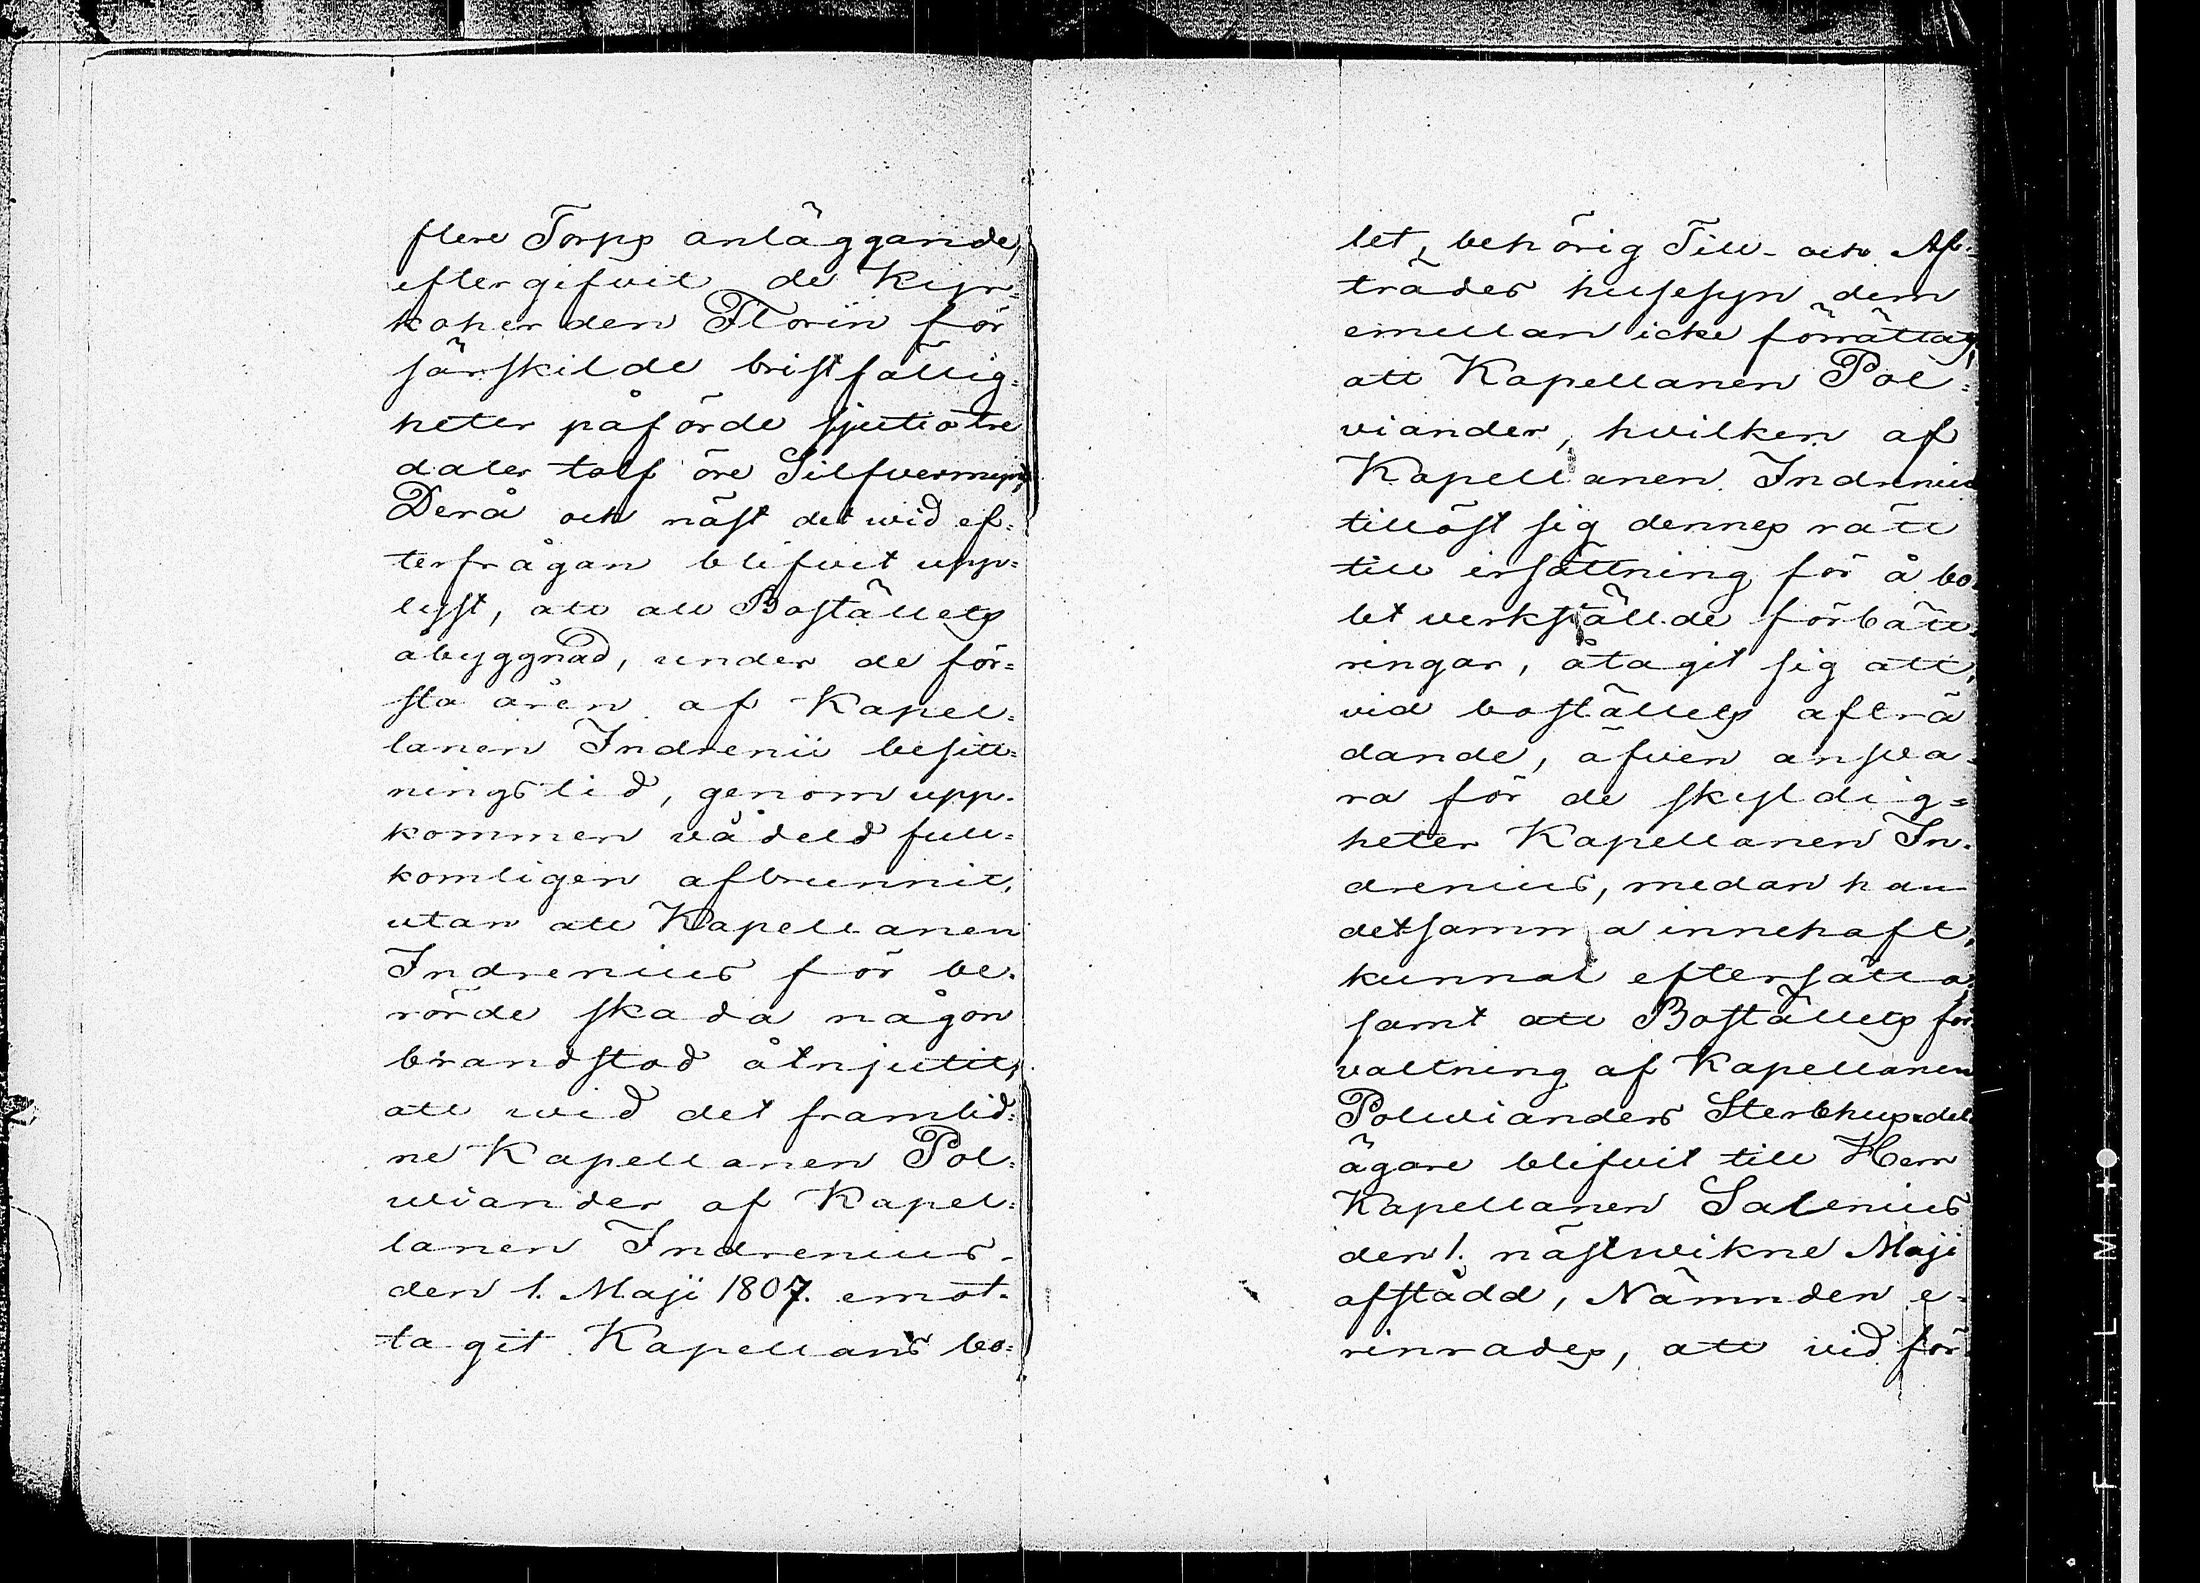 flere Torps anläggande,
eftergifvit de Kyr=
koherden Florin för
särskilde bristfällig=
heter påförde sjutiotre
daler tolf öre Silfvermynt,
Derå och näst det wid ef=
terfrågan blifvit upp=
lyst, att all Boställets
åbyggnad, under de för=
sta åren af Kapel=
lanen Indrenii besitt=
ningstid, genom upp=
kommen vådeld full=
komligen afbrunnit,
utan att Kapellanen
Indrenius för be=
rörde skada någon
brandstod åtnjutit,
att wid det framlid=
ne Kapellanen Pol=
wiander af Kapel=
lanen Indrenius
den 1. Maji 1807. emot=
tagit Kapellans bo=
let, behörig Till- och Af=
trädes husesyn dem
emellan icke förrättats,
att Kapellanen Pol=
viander, hvilken af
Kapellanen Indrenius
tillöst sig dennes rätt
till ersättning för å bo=
let verkställde förbätt=
ringar, åtagit sig att,
vid boställets afträ
dande, äfven ansva=
ra för de skyldig=
heter Kapellanen In=
drenius, medan han
detsamma innehaft,
kunnat eftersätta,
samt att Boställets för
valtning af Kapellanen
Polvianders Sterbhusdel=
ägare blifvit till Herr
Kapellanen Salenius
den 1. nästwikne Maji
afstådd, Nämnden e=
rinrades, att vid för=